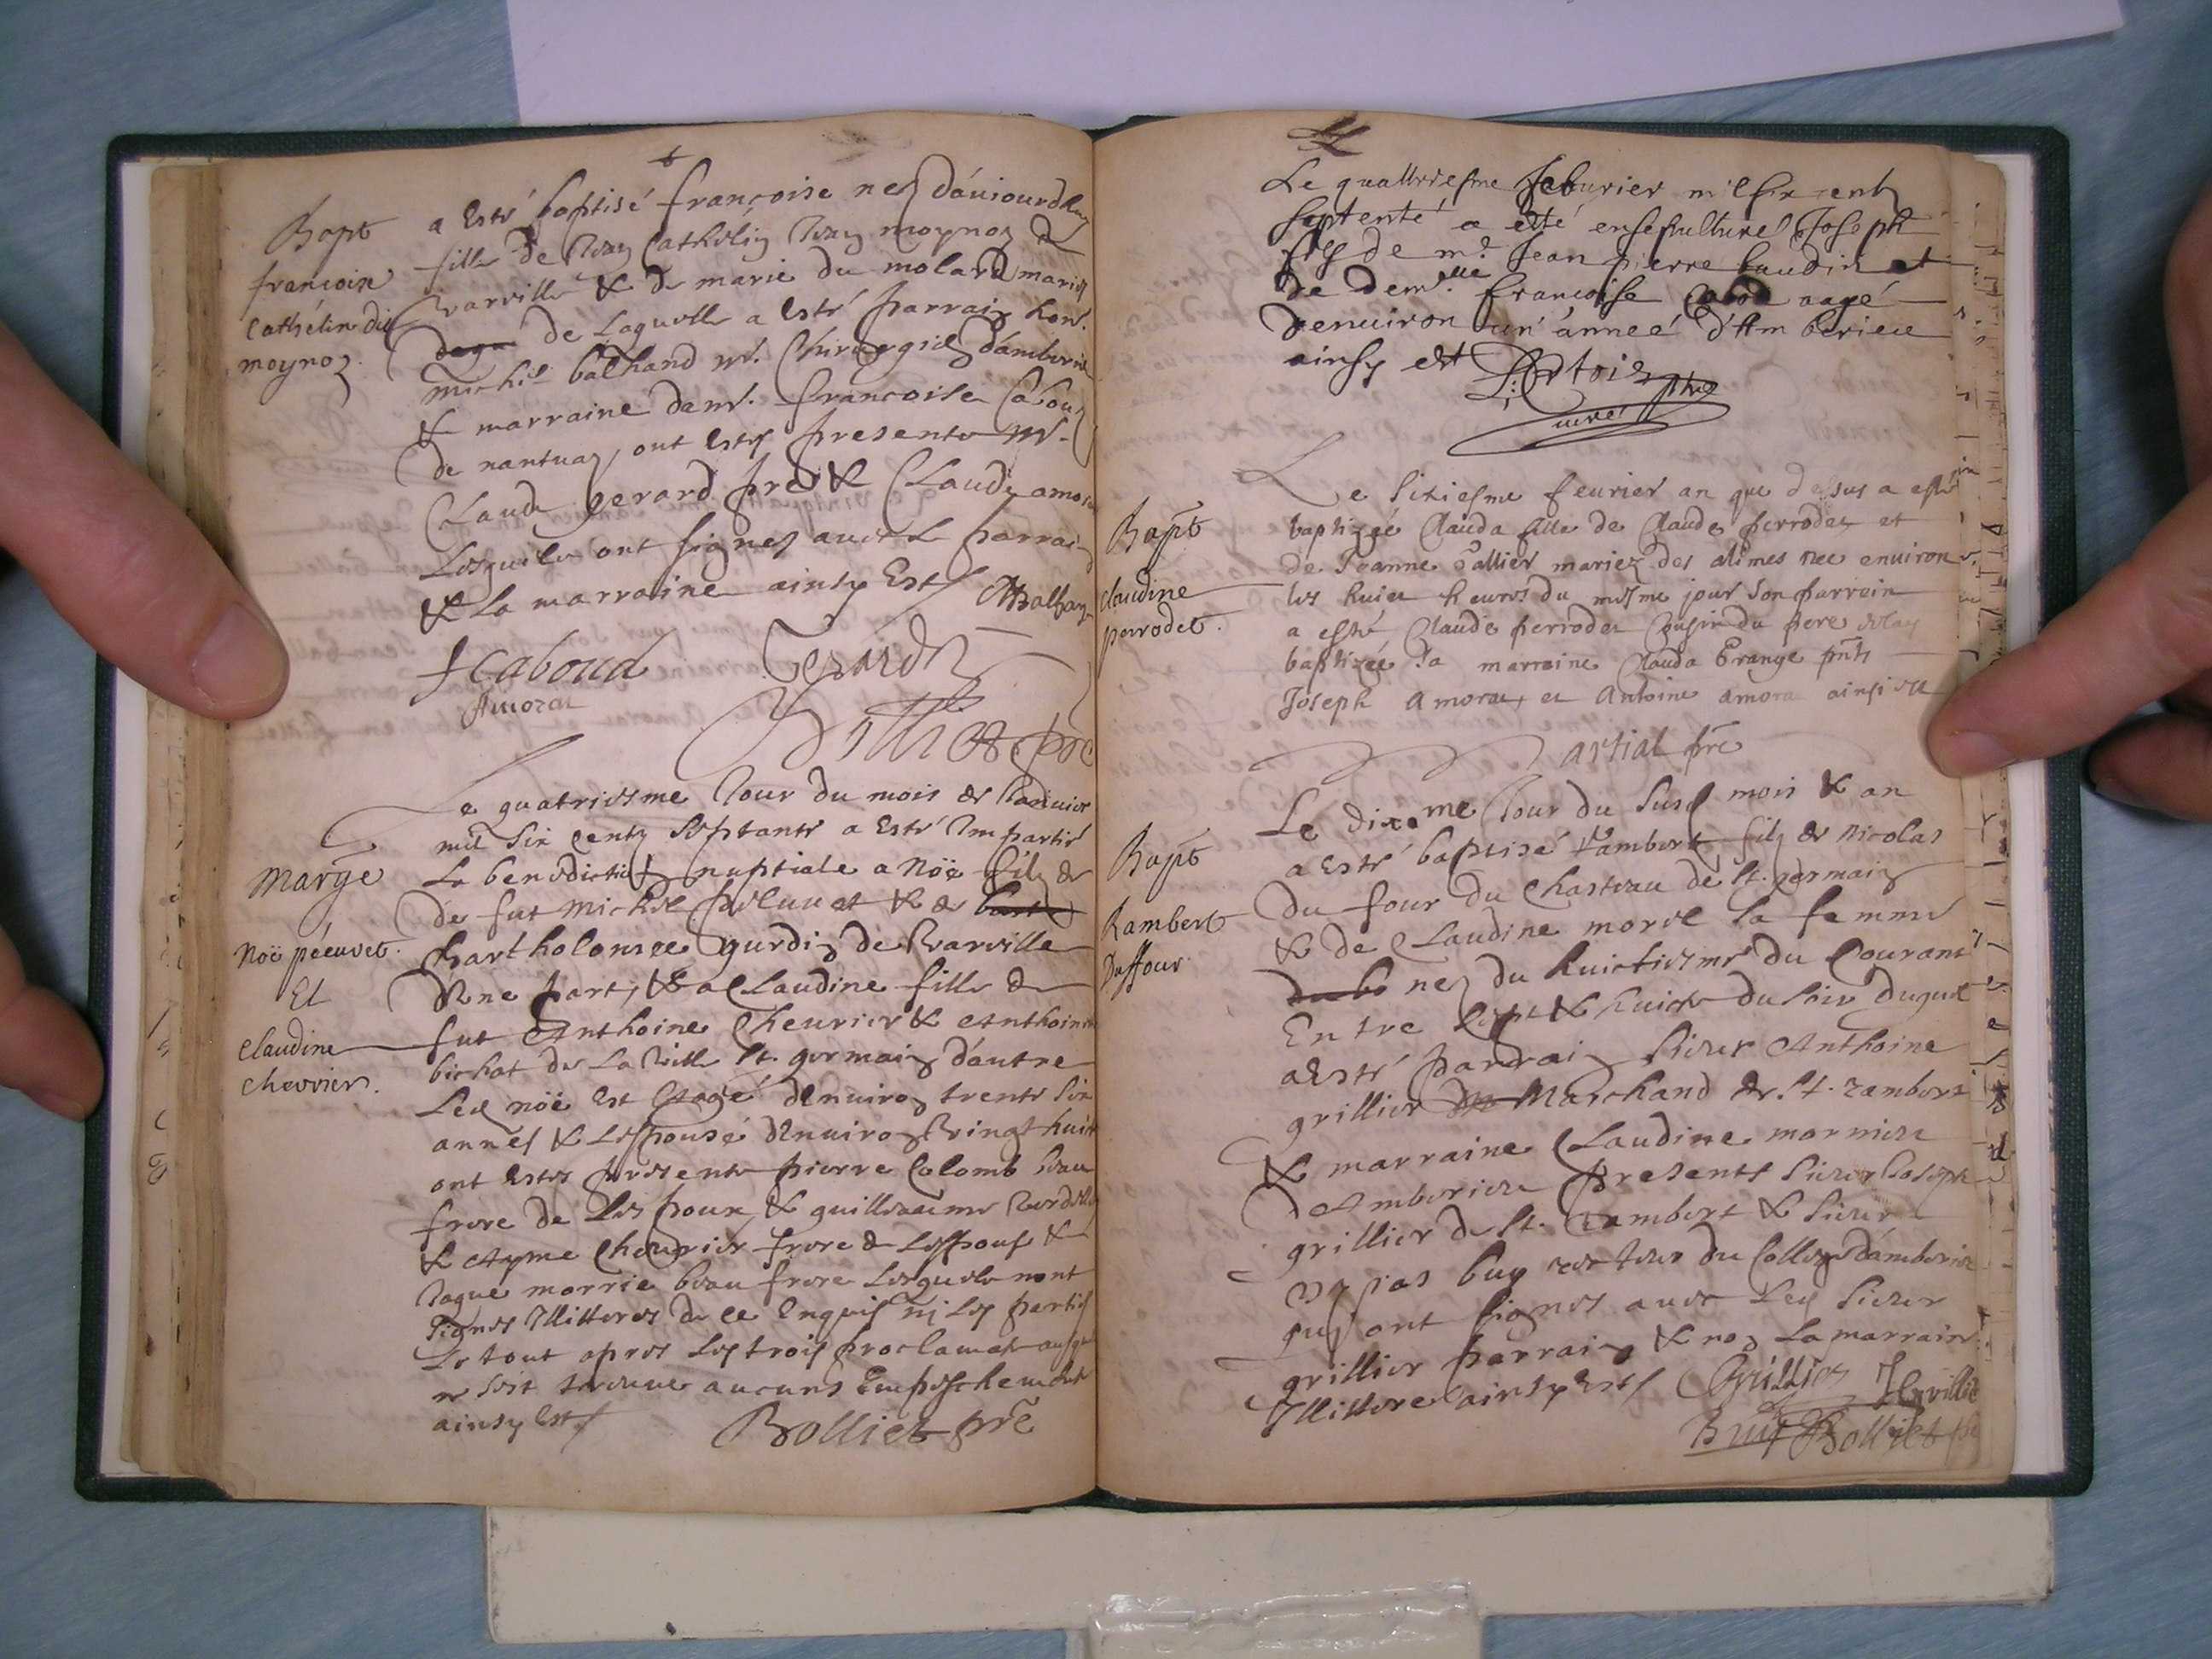 Bapt
francoise
Cathélin dit
moynoz.
a Esté baptisé françoise neé dáuiourdhuy
fille de Jean Catheliņ Jean moynoz de
Varville & de marie du molard mariés
de Laquelle a Esté parraiņ hon.
michel balhand mr. Chirurgieņ dámberieu
& marraine damle. francoise Caboud
de nantuaz, ont Estés presents mr.
Claude gerard pre & Claude amoraz
Lesquels ont signez auec Le parraiņ
& La marraine ainsy Est
MBalhan
fcaboud Gerard
Amoraz
pre
Le quatriesme Jour du mois de Januier
mil Six Centz Septante a Esté Imparties
La benediction nuptiale a Noë filz de
de fut Michel peeuuet & de
barthoLomee gurdiņ de Varville
dVne part, & a CLaudine fille de
fut Anthoine Cheurier & Anthoinette
bichat de La Ville St. germaiņ d'autre
Led noë Est Aagé denuiroņ trente Six
années & Lespousé denuiroņ Vingt huict
ont Estes presents pierre Colomb beau
frere de Lespoux, & guilleaume
& Ayme Cheurier frere de Lespouse &
Jaque morrie beau frere Lesquels nont
signes Illitteres de ce Enquis nj Les parties
Le tout apres Les trois proclamats
ne soit treuue aucuns Empeschements
ainsy Est
Bolliet pre
Marge
Noë péeuvet.
Et
Claudine
Chevrier.
Le quattriesme feburier mil six cent
septente a esté ensepulturé Joseph
fils de mr. Jean pierre baudin et
de demlle francoise Cabod aagé
denuiron un ánneé d'Amberieu
ainsy est
curé
Bapt
Claudine
perrodet.
Le Sixiesme feurier an que dessus a esté
baptizée Clauda fille de Claude perrodet et
de Jeanne Tallier mariez des alimes nee enuiron
les huict heures du mesme jour Son parrein
a esté Claude perrodet Cousin du pere de la
baptizée Sa marraine Clauda Erange pnts
Joseph Amoraz et Antoine amoraz ainsi est
artial pre
Bapt
Rambert
Duffour
Le dixeme Jour du Susd mois & an
a Esté baptisé Rambert filz de Nicolas
du four du Chasteau de St. germaiņ
& de CLaudine morel Sa femme
neé du huictiesme du Courant
Entre Sept & huict du Soir duquel
a Esté parraiņ Sieur Anthoine
grillier Marchand de St. rambert
& marraine CLaudine mornieu
dAmberieu presents Sieur Joseph
grillier de St. rambert & Sieur
buy recteur du College dámberieu
quj ont signes auec Led Sieur
grillier parraiņ & noņ La marraine
Illittere ainsy Est
Grillier
JGrillie
Buy Bolliet pre